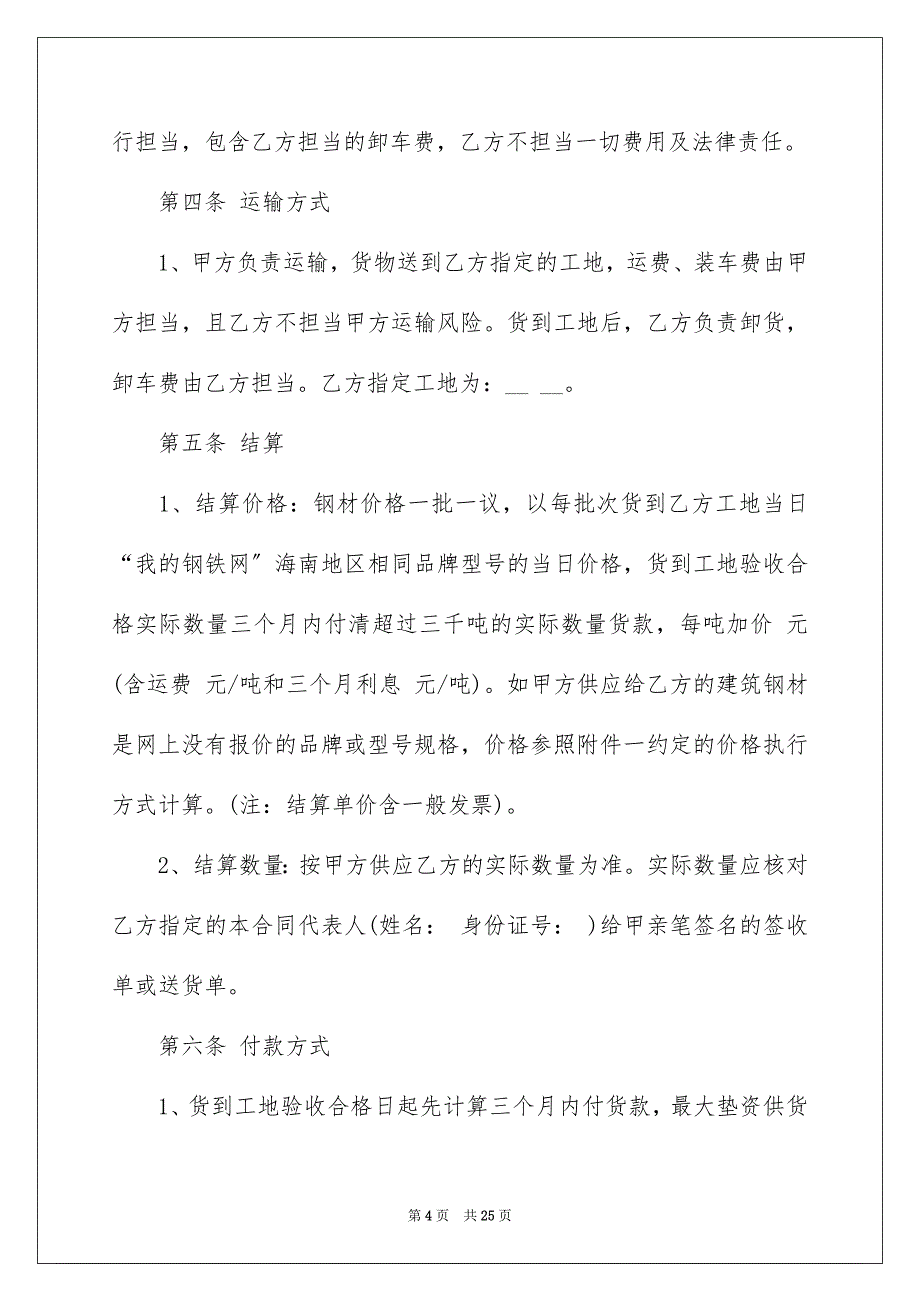 行担当，包含乙方担当的卸车费，乙方不担当一切费用及法律责任。
第四条 运输方式
1、甲方负责运输，货物送到乙方指定的工地，运费、装车费由甲
方担当，且乙方不担当甲方运输风险。货到工地后，乙方负责卸货，
卸车费由乙方担当。乙方指定工地为：__ __。
第五条 结算
1、结算价格：钢材价格一批一议，以每批次货到乙方工地当日
“我的钢铁网〞海南地区相同品牌型号的当日价格，货到工地验收合
格实际数量三个月内付清超过三千吨的实际数量货款，每吨加价 元
(含运费 元/吨和三个月利息 元/吨)。如甲方供应给乙方的建筑钢材
是网上没有报价的品牌或型号规格，价格参照附件一约定的价格执行
方式计算。(注：结算单价含一般发票)。
2、结算数量：按甲方供应乙方的实际数量为准。实际数量应核对
乙方指定的本合同代表人(姓名： 身份证号： )给甲亲笔签名的签收
单或送货单。
第六条 付款方式
1、货到工地验收合格日起先计算三个月内付货款，最大垫资供货
第 4 页 共 25 页